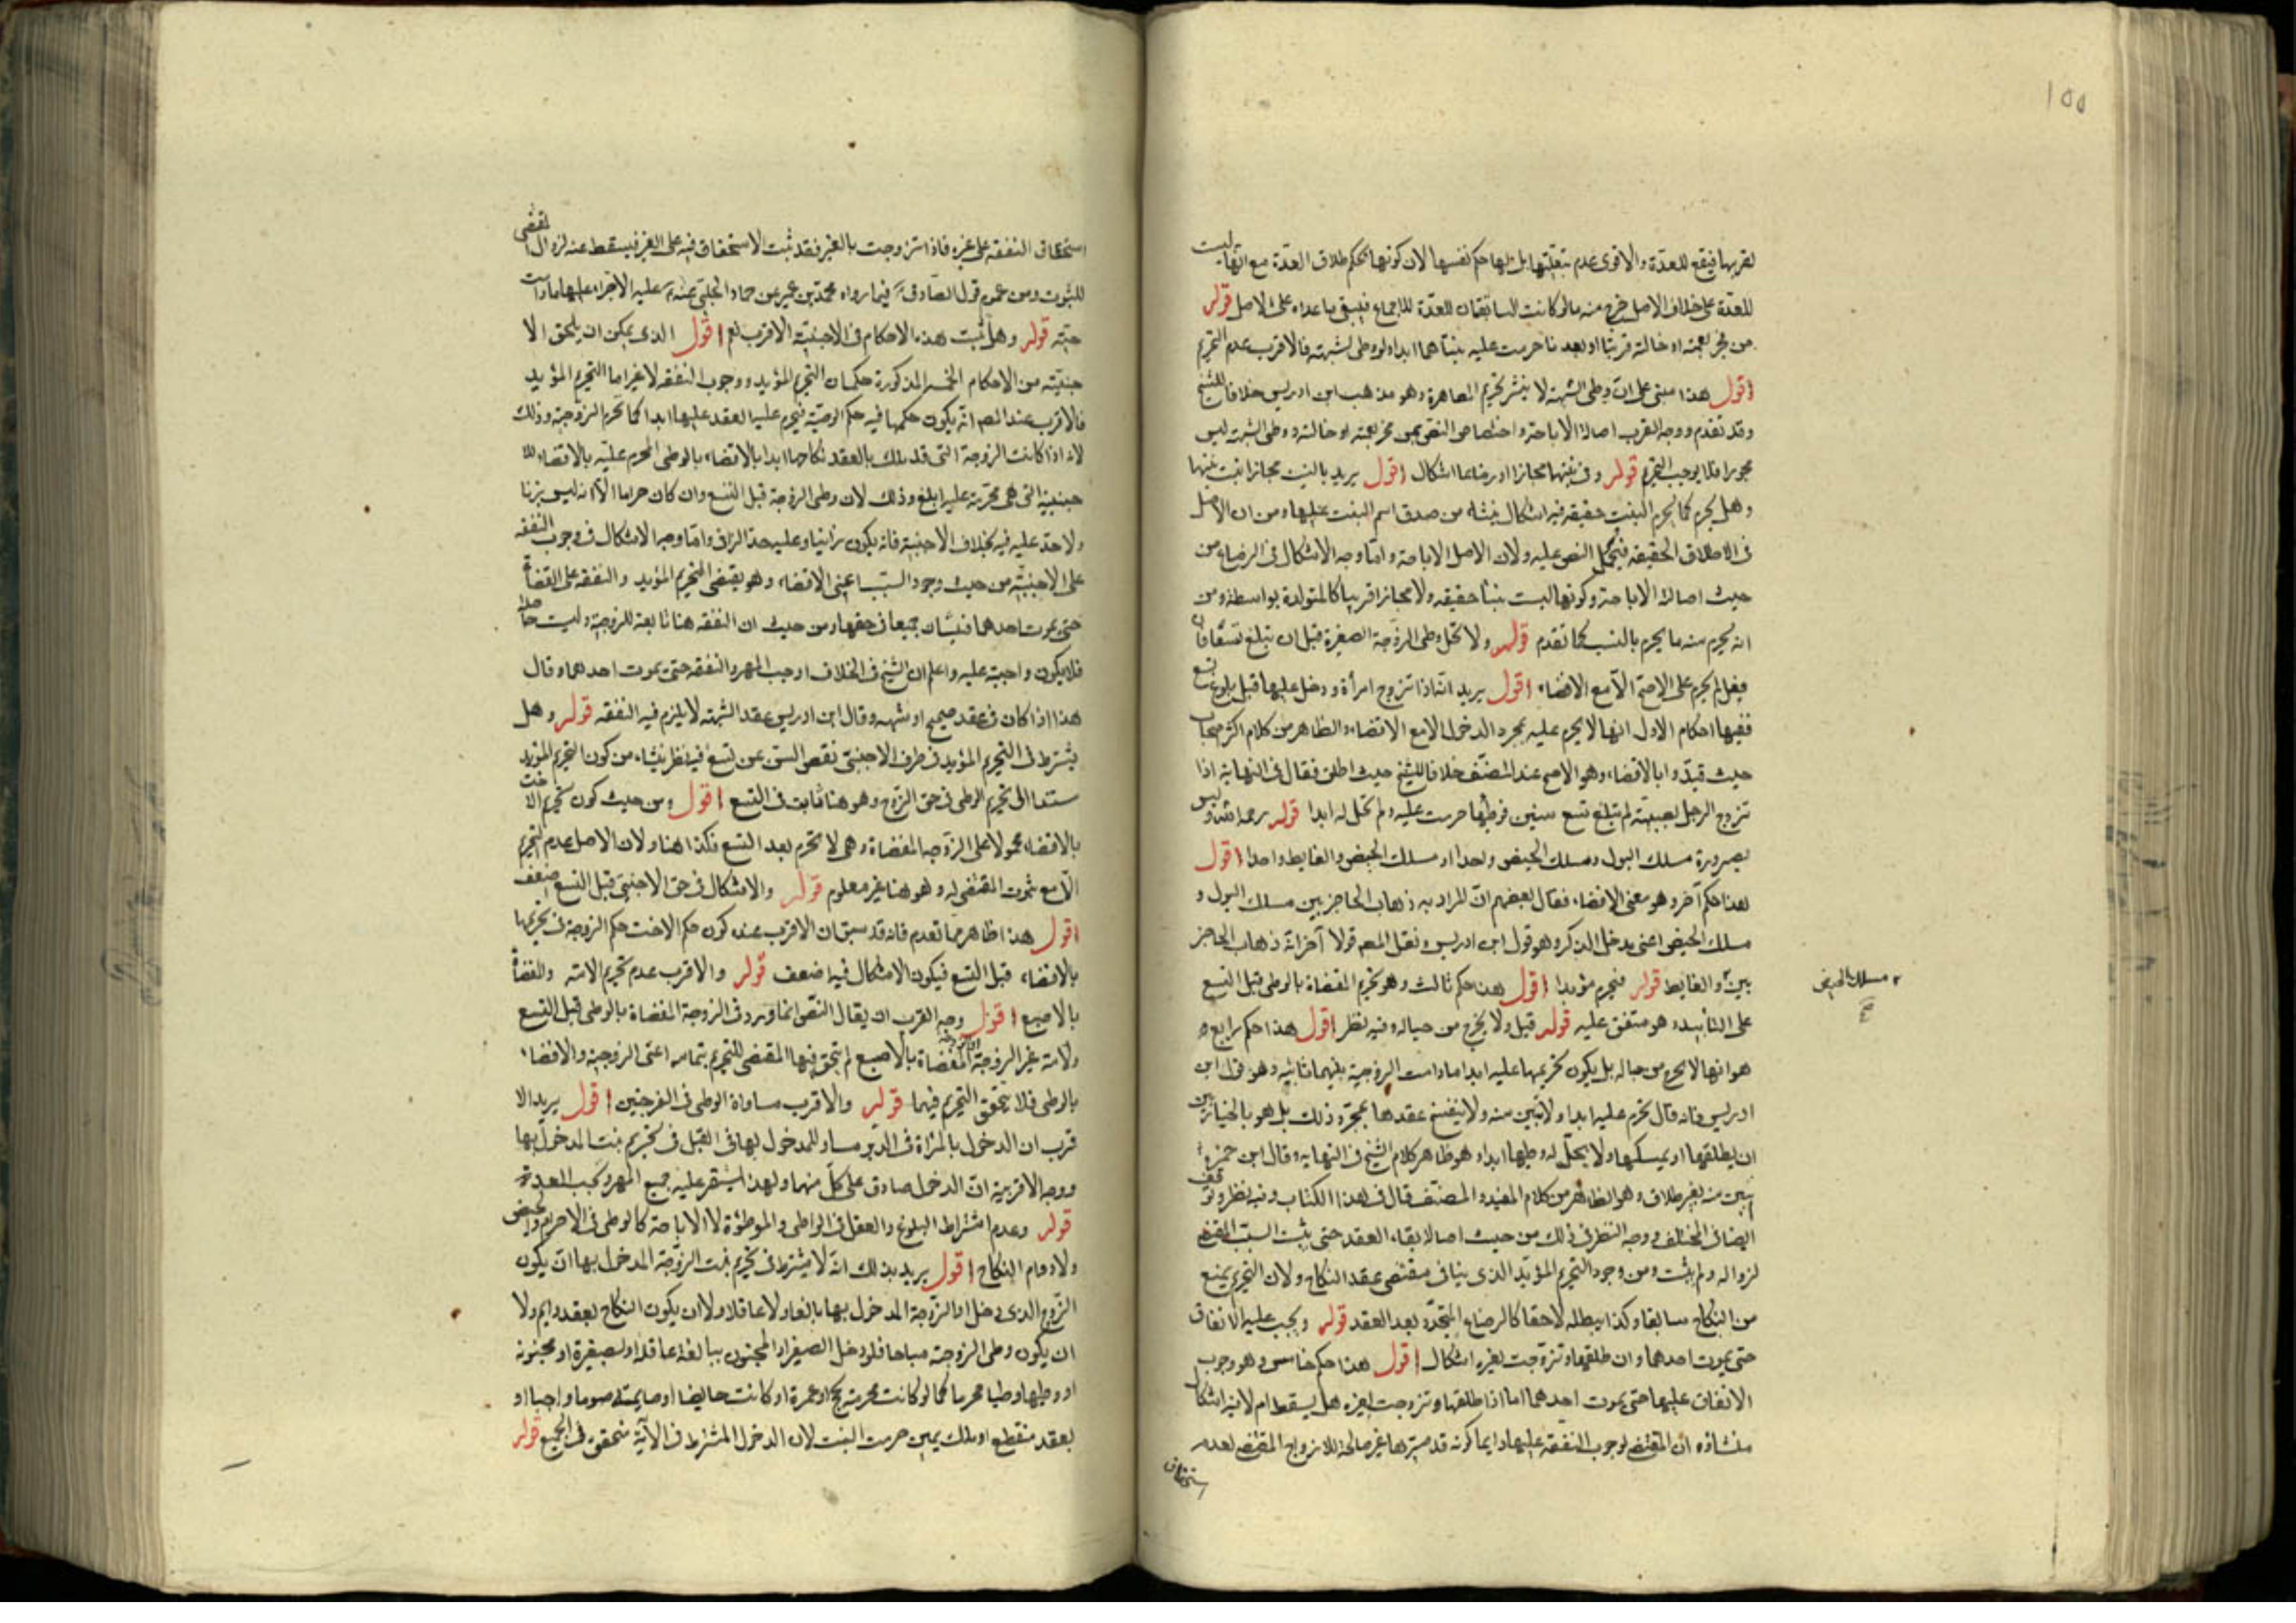 ١٥٥
لقربها فيقع للعدة والاقوى عدم تبعيتها بل لها حكم نفسها لان كونها بحكم طلاق العدة مع انها ليست
للعدة على خلاف الاصل خرج منه ما لو كانت السابقتان للعدة للاجماع فيبقى ما عداه على الاصل قوله
من فجر بعمته او خالته قريبا او بعد نا حرمت عليه بنتاهما ابدا ولو وطى لشبهة فالاقرب عدم التحريم
اقول هذا مبنى على ان وطى الشبهة لا ينشر تحريم المصاهرة وهو مذهب ابن ادريس خلافا للشيخ
وقد تقدم ووجه القرب اصالة الاباحة واختصاص النص بمن فجر بعمته او خالته ووطى الشبهة ليس
فجورا فلا يوجب التحريم قوله وفى بنتها مجازا او رضاعا اشكال اقول يريد بالبنت مجازا بنت بنتها
وهل تحرم كما تحرم البنت حقيقة فيه اشكال ينشاء من صدق اسم البنت عليها ومن ان الاصل
فى الاطلاق الحقيقة فيحمل النص عليه ولان الاصل الاباحة واما وجه الاشكال فى الرضاع من
حيث اصالة الاباحة وكونها ليست بنتا حقيقة ولا مجازا قريبا كالمتولدة بواسطة ومن
انه يحرم منه ما يحرم بالنسب كما تقدم قوله ولا تحل وطى الزوجة الصغيرة قبل ان تبلغ تسعا فان
فعل لم تحرم على الاصح الا مع الافضاء اقول يريد انه اذا تزوج امرأة ودخل عليها قبل بلوغ تسع
ففيها احكام الاول انها لا تحرم عليه بمجرد الدخول الا مع الافضاء والظاهر من كلام اكثر اصحابنا
حيث قيدوا بالافضاء وهو الاصح عند المصنف خلافا للشيخ حيث اطلق فقال فى النهاية اذا
تزوج الرجل بصبية لم تبلغ تسع سنين فوطئها حرمت عليه ولم تحل له ابدا قوله رحمه الله وليس
بصيرورة مسلك البول ومسلك الحيض واحدا او مسلك الحيض والغايط واحدا اقول
هذا حكم آخر وهو معنى الافضاء فقال بعضهم ان المراد به ذهاب الحاجز بين مسلك البول و
مسلك الحيض اعنى مدخل الذكر وهو قول ابن ادريس ونقل المص قولا آخر انه ذهاب الحاجز
بين والغايط قوله فتحرم مؤبدا اقول هذا حكم ثالث وهو تحريم المفضاة بالوطى قبل التسع
مسلك الحيض
صح
على التأبيد وهو متفق عليه قوله قيل ولا يخرج من حباله وفيه نظر اقول هذا حكم رابع و
هو انها لا تخرج من حباله بل يكون تحريمها عليه ابدا ما دامت الزوجية بينهما ثابتة وهو قول ابن
ادريس فانه قال تحرم عليه ابدا ولا تبين منه ولا ينفسخ عقدها بمجرد ذلك بل هو بالخيار بين
ان يطلقها او يمسكها ولا يحل له وطيها ابدا وهو ظاهر كلام الشيخ فى النهاية وقال ابن حمزة
تبين منه بغير طلاق وهو الظاهر من كلام المفيد والمصنف قال فى هذا الكتاب وفيه نظر وتوقف
ايضا فى المختلف ووجه النظر فى ذلك من حيث اصالة بقاء العقد حتى يثبت السبب المقتضى
لزواله ولم يثبت ومن وجود التحريم المؤبد الذى ينافى مقتضى عقد النكاح ولان التحريم يمنع
من النكاح سابقا وكذا يبطله لاحقا كالرضاع المتجدد بعد العقد قوله ويجب عليه الانفاق
حتى يموت احدهما وان طلقها وتزوجت بغيره اشكال اقول هذا حكم خامس وهو وجوب
الانفاق عليها حتى يموت احدهما اما اذا طلقها وتزوجت بغيره هل يسقط ام لا فيه اشكال
منشاؤه ان المقتضى لوجوب النفقة عليها دايما كونه قد صيرها غير صالحة للازواج المقتضى لعدم
استحقاق
استحقاق النفقة على غيره فاذا تزوجت بالغير فقد ثبت الاستحقاق فيه على الغير فيسقط عنه لزوال المقتضى
للثبوت ومن عموم قول الصادق فيما رواه محمد بن عمير عن حماد الحلبى عنه عليه الاجراء عليها ما دامت
حيّة قوله وهل تثبت هذه الاحكام فى الاجنبية الاقرب نعم اقول الذى يمكن ان يلحق الا
جنبية من الاحكام الخمسة المذكورة حكمان التحريم المؤبد ووجوب النفقة لا غير اما التحريم المؤبد
فالاقرب عند المص انه يكون حكمها فيه حكم الزوجة فيحرم عليه العقد عليها ابدا كما تحرم الزوجة وذلك
لانه اذا كانت الزوجة التى قد ملك بالعقد نكاحها ابدا بالافضاء بالوطى المحرم عليه بالافضاء للا
جنبية التى هى محرمة عليه ابلغ وذلك لان وطى الزوجة قبل التسع وان كان حراما الا انه ليس بزنا
ولا حد عليه فيه بخلاف الاجنبية فانه يكون زانيا وعليه حد الزانى واما وجه الاشكال فى وجوب النفقة
على الاجنبية من حيث وجود السبب اعنى الافضاء وهو يقتضى التحريم المؤبد والنفقة على المفضاة
حتى يموت احدهما فيثبتان جميعا فى حقها ومن حيث ان النفقة هنا تابعة للزوجية وليست حاصلة
فلا يكون واجبة عليه واعلم ان الشيخ فى الخلاف اوجب المهر والنفقة حتى يموت احدهما وقال
هذا اذا كان فى عقد صحيح او شبهه وقال ابن ادريس عقد الشبهة لا يلزم فيه النفقة قوله وهل
يشترط فى التحريم المؤبد فى طرف الاجنبى نقص السن عن تسع فيه نظر ينشاء من كون التحريم المؤبد
مستندا الى تحريم الوطى فى حق الزوج وهو هنا ثابت فى التسع اقول ومن حيث كون تحريم الاخت
بالافضاء محمولا على الزوجة المفضاة وهى لا تحرم بعد التسع فكذا هنا ولان الاصل عدم التحريم
الا مع ثبوت المقتضى له وهو هنا غير معلوم قوله والاشكال فى حق الاجنبى قبل التسع اضعف
اقول هذا ظاهر مما تقدم فانه قد سبق ان الاقرب عنده كون حكم الاخت حكم الزوجة فى تحريمها
بالافضاء قبل التسع فيكون الاشكال فيه اضعف قوله والاقرب عدم تحريم الامة والمفضاة
بالاصبع اقول وجه القرب ان يقال النص انما ورد فى الزوجة المفضاة بالوطى قبل التسع
والامة غير الزوجة المفضاة بالاصبع لم يتحقق فيها المقتضى للتحريم بتمامه اعنى الزوجية والافضاء
بالوطى فلا يتحقق التحريم فيهما قوله والاقرب مساواة الوطى فى الفرجين اقول يريد الا
قرب ان الدخول بالمرأة فى الدبر مساو للمدخول بها فى القبل فى تحريم بنت المدخول بها
ووجه الاقربية ان الدخول صادق على كل منهما ولهذا يستقر عليه جميع المهر وتجب العدة
قوله وعدم اشتراط البلوغ والعقل فى الواطى والموطؤة لا الاباحة كالوطى فى الاحرام والحيض
ولا دوام النكاح اقول يريد بذلك انه لا يشترط فى تحريم بنت الزوجة المدخول بها ان يكون
الزوج الذى دخل او الزوجة المدخول بها بالغا ولا عاقلا ولا ان يكون النكاح بعقد دايم ولا
ان يكون وطى الزوجة مباحا فلو دخل الصغير او المجنون ببالغة عاقلة او بصغيرة او مجنونة
او وطيها وطيا محرما كما لو كانت محرمة بحج او عمرة او كانت حايضا او صايمة صوما واجبا او
بعقد منقطع او ملك يمين حرمت البنت لان الدخول المشترط فى الآية متحقق فى الجميع قوله